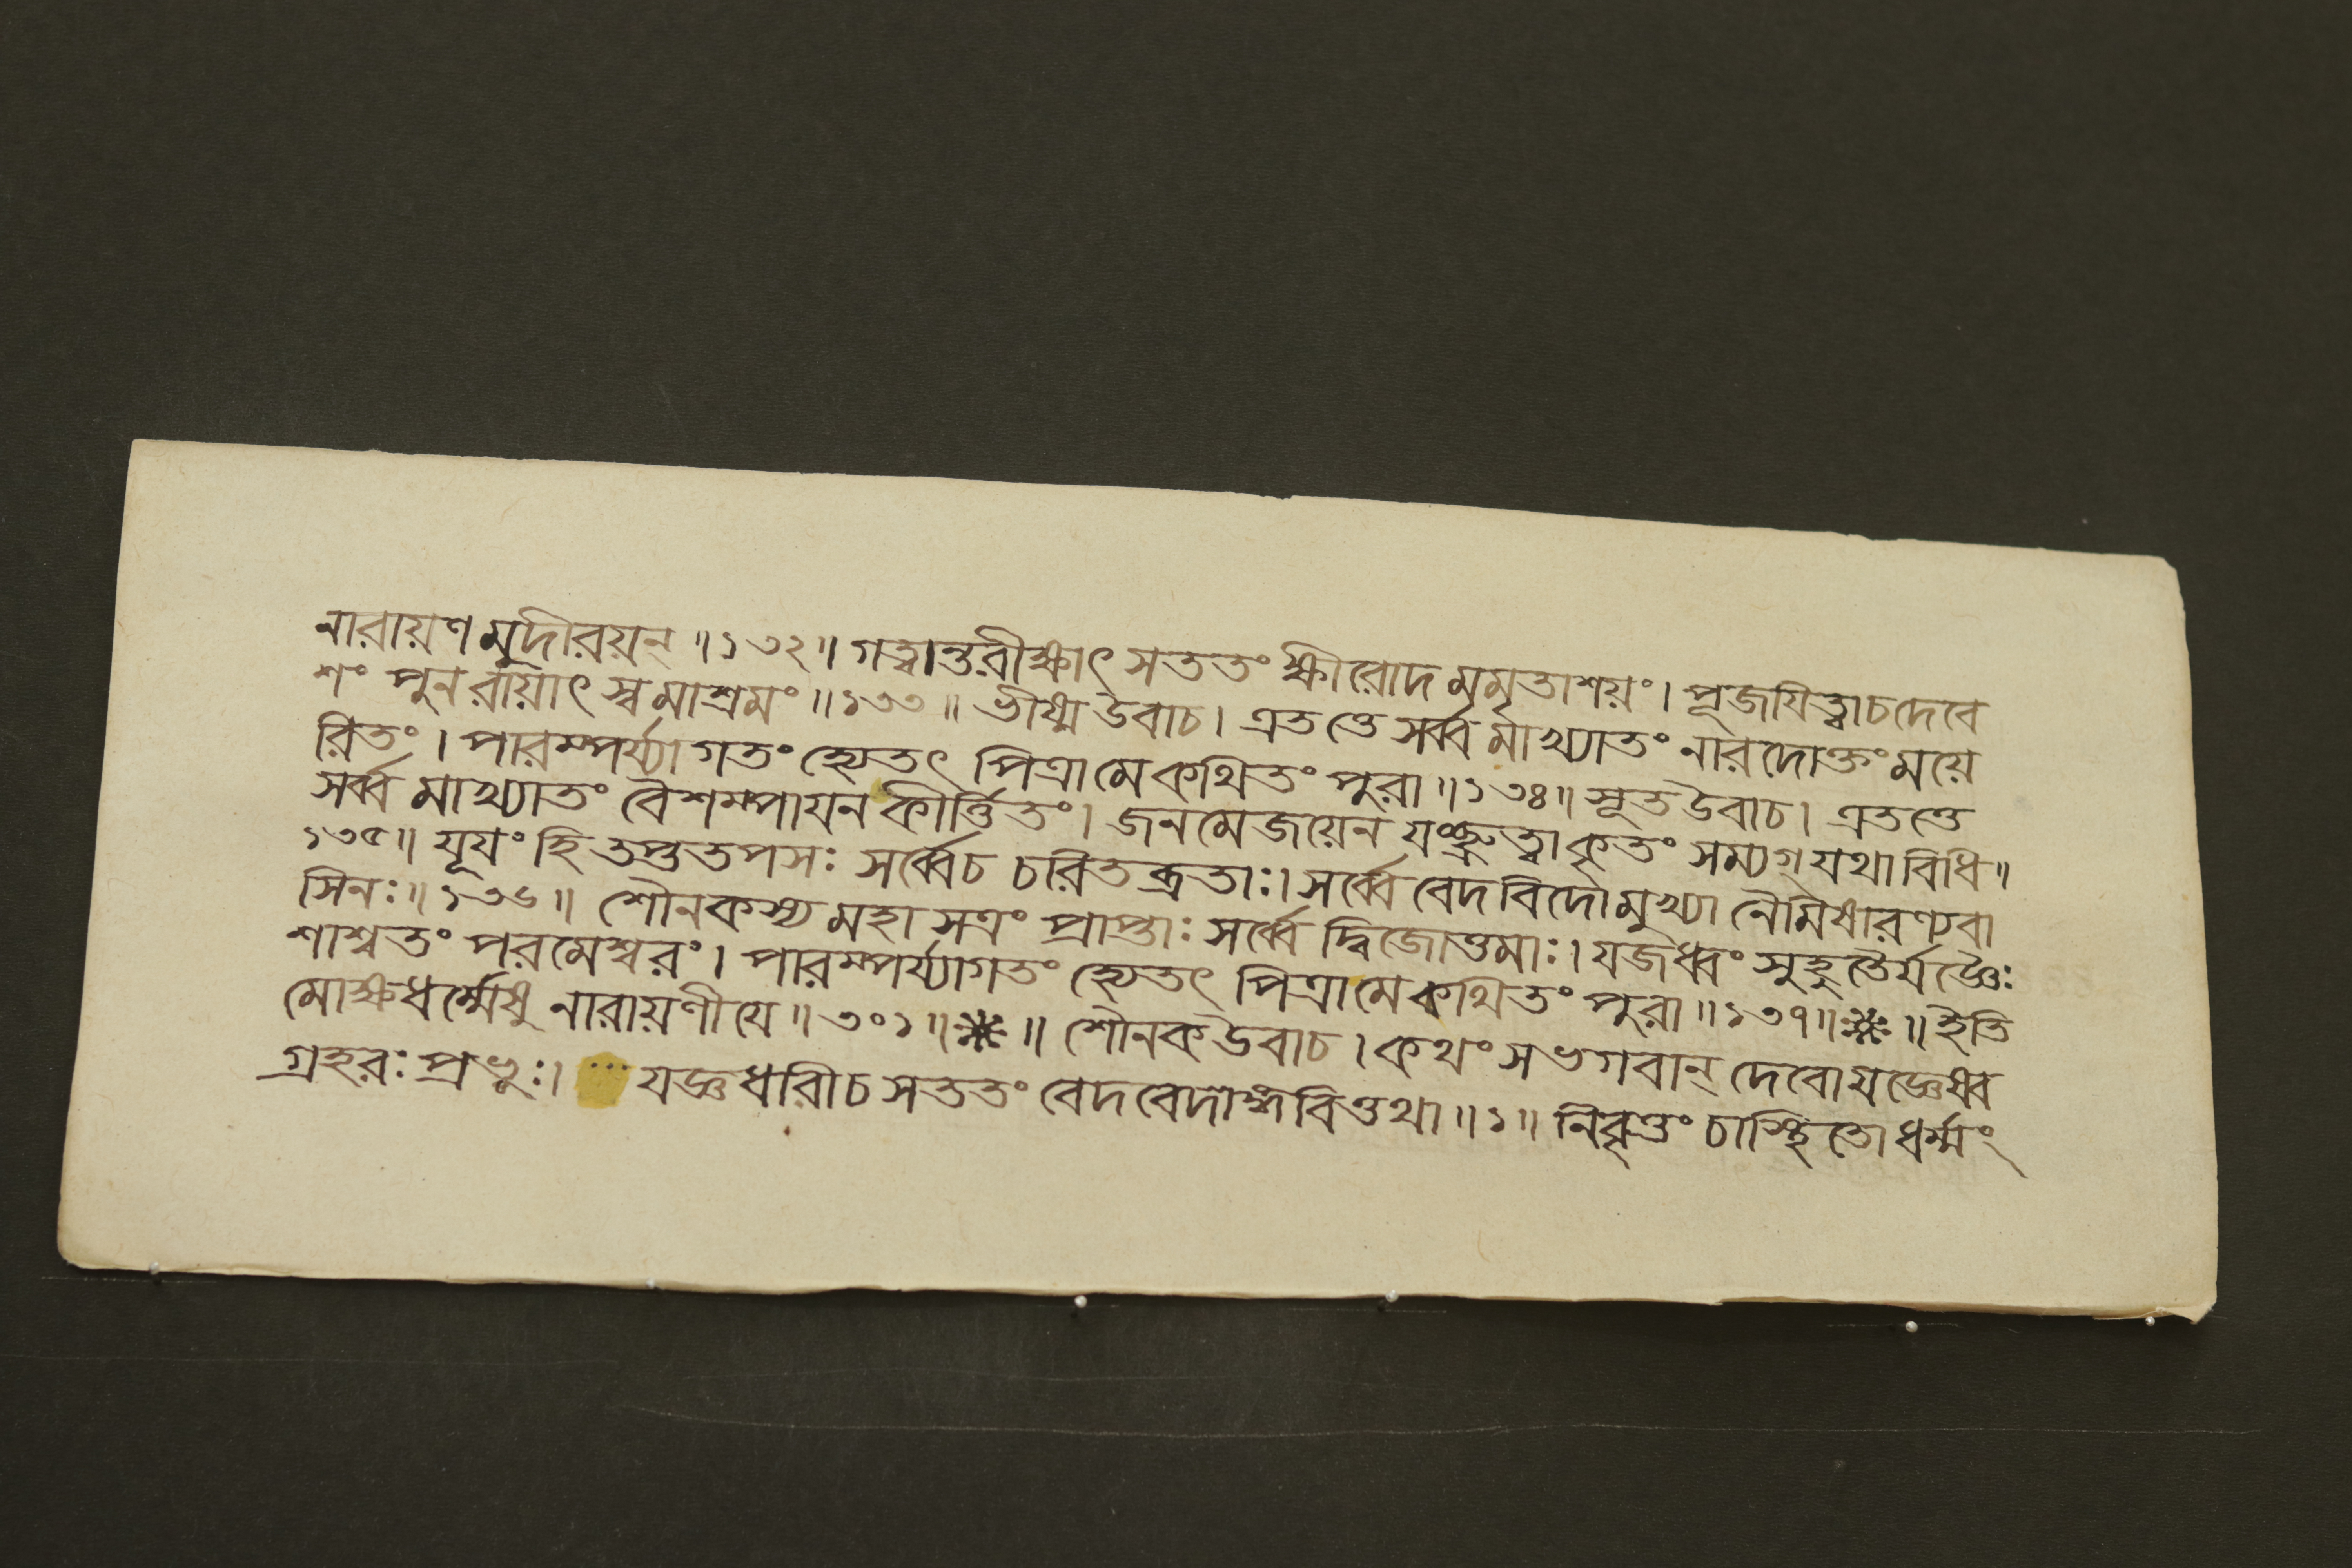 নারায়ণমুদীরয়ন্ ॥১৩২॥ গত্বান্তরীক্ষাৎ সততং ক্ষীরোদমমৃতাশয়ং। পূজযিত্বাচদেবে
শং পুনরায়াৎ স্বমাশ্রমং ॥১৩৩॥ ভীষ্ম উবাচ। এতত্তে সর্ব্বমাখ্যাতং নারদোক্তংময়ে
রিতং। পারম্পর্য্যাগতং হ্যেতৎ পিত্রামেকথিতং পুরা ॥১৩৪॥ সূত উবাচ। এতত্তে
সর্ব্বমাখ্যাতং বৈশম্পাযনকীর্ত্তিতং। জনমেজয়েন যংচ্ছ্রুত্বাকৃতং সম্যগ্যথাবিধি॥
১৩৫॥ যূযং হি তপ্ততপসঃ সর্ব্বেচ চরিতব্রতাঃ। সর্ব্বে বেদবিদোমুখ্যা নৈমিষারণ্যবা
সিনঃ॥১৩৬॥ শৌনকস্য মহাসত্রং প্রাপ্তাঃ সর্ব্বে দ্বিজোত্তমাঃ। যজধ্বং সুহুতৈর্যজ্ঞৈঃ
শাশ্বতং পরমেশ্বরং। পারম্পর্য্যাগতং হ্যেতৎ পিত্রামেকথিতং পুরা ॥১৩৭॥※॥ ইতি
মোক্ষধর্ম্মেষু নারায়ণীযে ॥৩০১॥※॥ শৌনক উবাচ। কথং সভগবান্ দেবোযজ্ঞেষ্ব
গ্রহরঃ প্রভুঃ। যজ্ঞধারীচ সততং বেদবেদাঙ্গবিত্তথা ॥১॥ নিবৃত্তং চাস্থিতো ধর্ম্মং